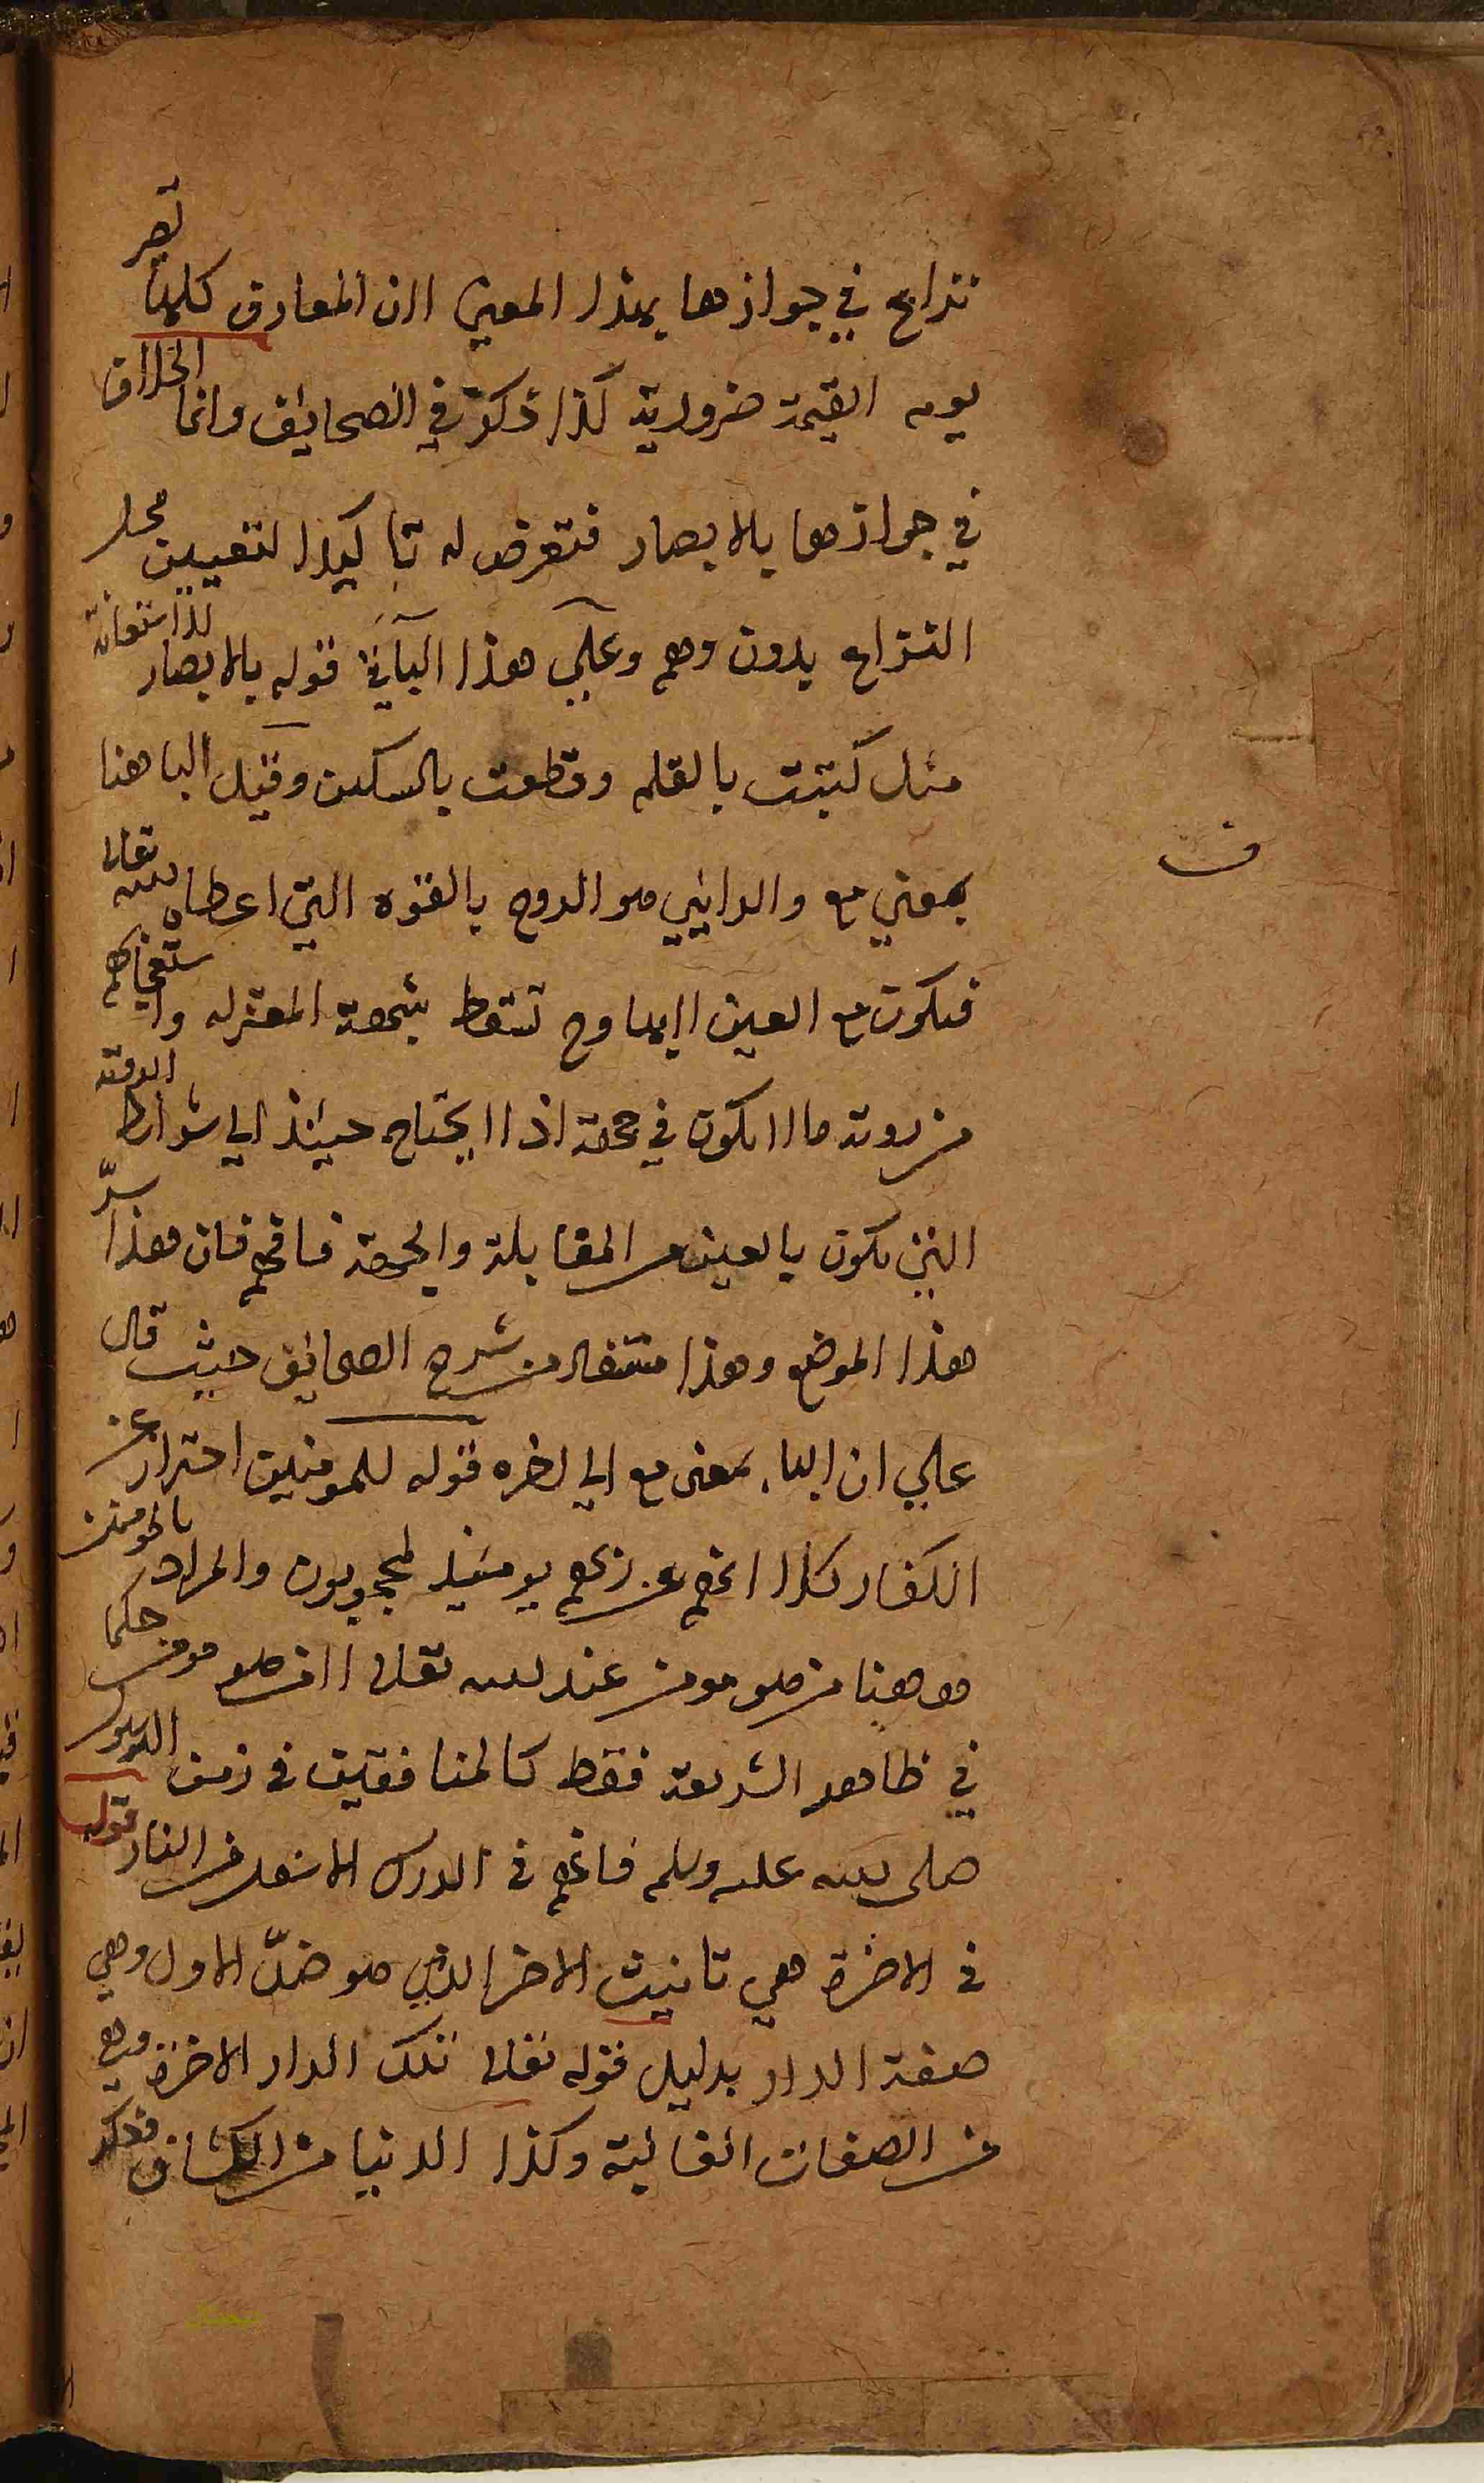 نزاع في جوازها بهذا المعنى لان المعارف كلها تصير
يوم القيمة ضرورية كذا ذكره في الصحايف وانما الخلاف
في جوازها بالابصار فتعرض له تاكيدا لتعيين محل
النزاع بدون وهم وعلي هذا الباء في قوله بالابصار للاستعانة
مثل كتبت بالقلم وقطعت بالسكين وقيل البا هنا
بمعني مع والرائي هو الروح بالقوه التي اعطاه الله تعالى
ف
فيكون مع العين لا بها وح تسقط شبهة المعتزله واستعجابهم
من روية ما لا يكون في جهة اذ لا يحتاج حينئذ الي شرائط الروية
التي يكون بالعين من المقابلة والجهة فافهم فان هذا سرّ
هذا الموضع وهذا مستفاد من شرح الصحايف حيث قال
علي ان الباء بمعنى مع الي اخره قوله للمومنين احتراز عن
الكفار كلا انهم عن ربهم يومئيذ لمحجوبون والمراد بالمومن
هو هنا من هو مومن عند الله تعالى لا من هو مومن حكما
في ظاهر الشريعة فقط كالمنافقين في زمن الرسول
صلى الله عليه وسلم فانهم في الدرك الاسفل من النار قوله
في الاخرة هي تانيث الاخر الذي هو ضدّ الاول وهي
صفة الدار بدليل قوله تعالى تلك الدار الاخرة وهي
من الصفات الغالبة وكذا الدنيا من الكشاف وذكر